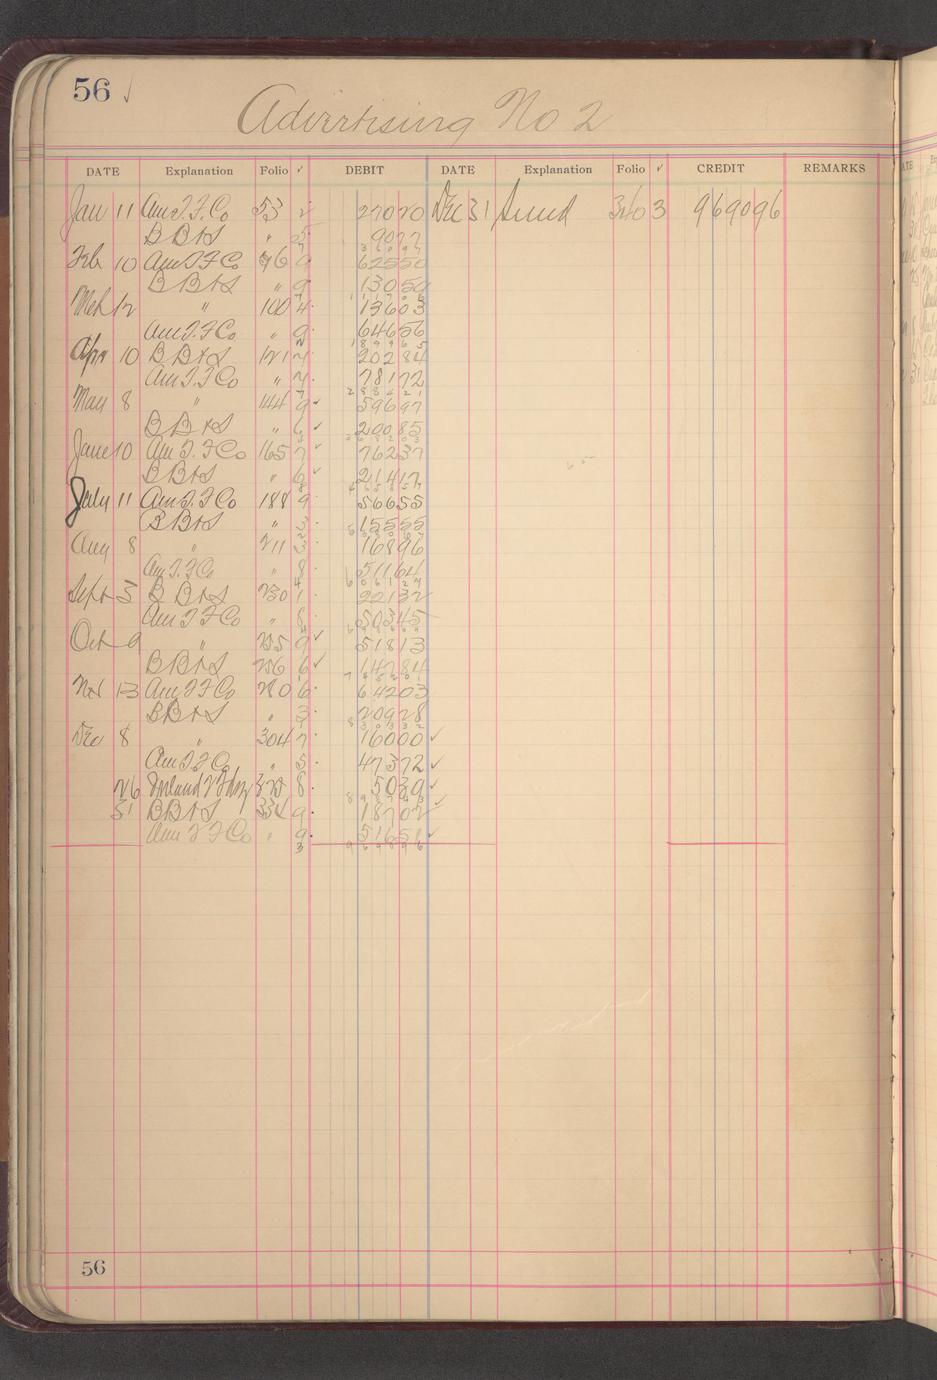 56 ✓
Advertising No 2
DATE Explanation Folio ✓ DEBIT DATE Explanation Folio ✓ CREDIT REMARKS
Jan 11 Am T. F. Co 53 2 27020 Dec 31 Sund 340 3 969096
B B & S " 5 9077
Feb 10 Am T F Co 76 9 62550
B B & S " 9 13050
Mch 12 " 100 4 13603
Am T. F Co " 9 64656
Apr 10 B B & S 121 20284
Am T. F Co " 78172
May 8 " 144 9 ✓ 59697
B B & S " 6 ✓ 20085
June 10 Am T. F Co 165 7 76237
B B & S " 6 ✓ 21417
July 11 Am T. F Co 188 9 56655
B B & S " 3 15555
Aug 8 " 211 3 16896
Am T. F Co " 8 51164
Sept 3 B B & S 230 1 22132
Am T F Co " 8 50345
Oct 9 " 255 9 ✓ 51813
B B & S 256 6 ✓ 14784
Nov 13 Am T F Co 280 6 64203
B B & S " 3 20928
Dec 8 " 304 7 16000 ✓
Am T. F Co " 5 47372 ✓
26 375 8 5039 ✓
31 B B & S 334 9 18702 ✓
Am T F Co " 9 51651 ✓
3 969896
56